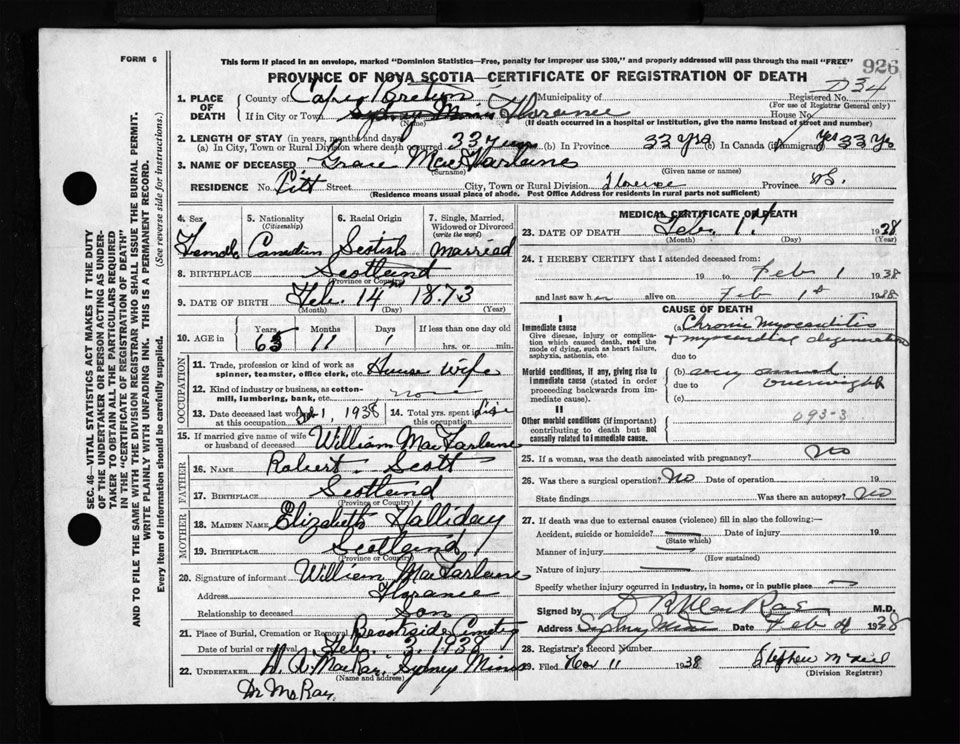 FORM 6
This form if placed in an envelope, marked "Dominion Statistics—Free, penalty for improper use $300," and properly addressed will pass through the mail "FREE"
926
PROVINCE OF NOVA SCOTIA—CERTIFICATE OF REGISTRATION OF DEATH
D34
1. PLACE OF DEATH
County of Cape Breton Municipality of Registered No.
(For use of Registrar General only)
If in City or Town Sydney Mines Florence House No.
(Name) (If death occurred in a hospital or institution, give the name instead of street and number)
2. LENGTH OF STAY (in years, months and days)
(a) In City, Town or Rural Division where death occurred 33 years (b) In Province 33 yrs (c) In Canada (if immigrant) 33 Ys
3. NAME OF DECEASED Grace MacFarlane
(Surname) (Given name or names)
RESIDENCE No. Pitt Street City, Town or Rural Division Province N.S.
(Residence means usual place of abode. Post Office Address for Residents in rural parts not sufficient)
4. Sex Female
5. Nationality (Citizenship) Canadian
6. Racial Origin Scotish
7. Single, Married, Widowed or Divorced (write the word) Married
8. BIRTHPLACE Scotland
(Province or Country)
9. DATE OF BIRTH Feb. 14th 1873
(Month) (Day) (Year)
10. AGE in Years Months Days If less than one day old
65 11 hrs. or min.
OCCUPATION
11. Trade, profession or kind of work as spinner, teamster, office clerk, etc. House Wife
12. Kind of industry or business, as cotton-mill, lumbering, bank, etc. none
13. Date deceased last worked at this occupation Feb 1, 1938 14. Total yrs. spent in this occupation Life
15. If married give name of wife or husband of deceased William MacFarlane
FATHER
16. NAME Robert Scott
17. BIRTHPLACE Scotland
(Province or Country)
MOTHER
18. MAIDEN NAME Elizabeth Halliday
19. BIRTHPLACE Scotland
(Province or Country)
20. Signature of informant William MacFarlane
Address Florance
Relationship to deceased Son
21. Place of Burial, Cremation or Removal Brookside Cemetery
Date of burial or removal Feb. 3, 1938
22. UNDERTAKER MacRay, Sydney Mines
(Name and address)
Dr McRay.
MEDICAL CERTIFICATE OF DEATH
23. DATE OF DEATH Feb. 1st 1938
(Month) (Day) (Year)
24. I HEREBY CERTIFY that I attended deceased from:
19 to Feb 1 1938
and last saw her alive on Feb 1st 1938
CAUSE OF DEATH
I
Immediate cause
Give disease, injury or complication which caused death, not the mode of dying, such as heart failure, asphyxia, asthenia, etc.
(a) Chronic Myocarditis
& myocardial degeneration
due to
Morbid conditions, if any, giving rise to immediate cause (stated in order proceeding backwards from immediate cause).
(b) very much
due to overweight
(c)
II
Other morbid conditions (if important) contributing to death but not causally related to immediate cause.
093-3
25. If a woman, was the death associated with pregnancy? No
26. Was there a surgical operation? No Date of operation 19
State findings Was there an autopsy? No
27. If death was due to external causes (violence) fill in also the following:—
Accident, suicide or homicide? Date of injury 19
(State which)
Manner of injury
(How sustained)
Nature of injury
Specify whether injury occurred in industry, in home, or in public place
Signed by D R MacRae M.D.
Address Sydney Mines Date Feb 4 1938
28. Registrar's Record Number
29. Filed Nov 11 1938 Stephen McNeil
(Division Registrar)
SEC. 46—VITAL STATISTICS ACT MAKES IT THE DUTY
OF THE UNDERTAKER OR PERSON ACTING AS UNDERTAKER TO OBTAIN ALL THE PARTICULARS REQUIRED
IN THE "CERTIFICATE OF REGISTRATION OF DEATH"
AND TO FILE THE SAME WITH THE DIVISION REGISTRAR WHO SHALL ISSUE THE BURIAL PERMIT.
WRITE PLAINLY WITH UNFADING INK. THIS IS A PERMANENT RECORD.
Every item of information should be carefully supplied. (See reverse side for instructions.)